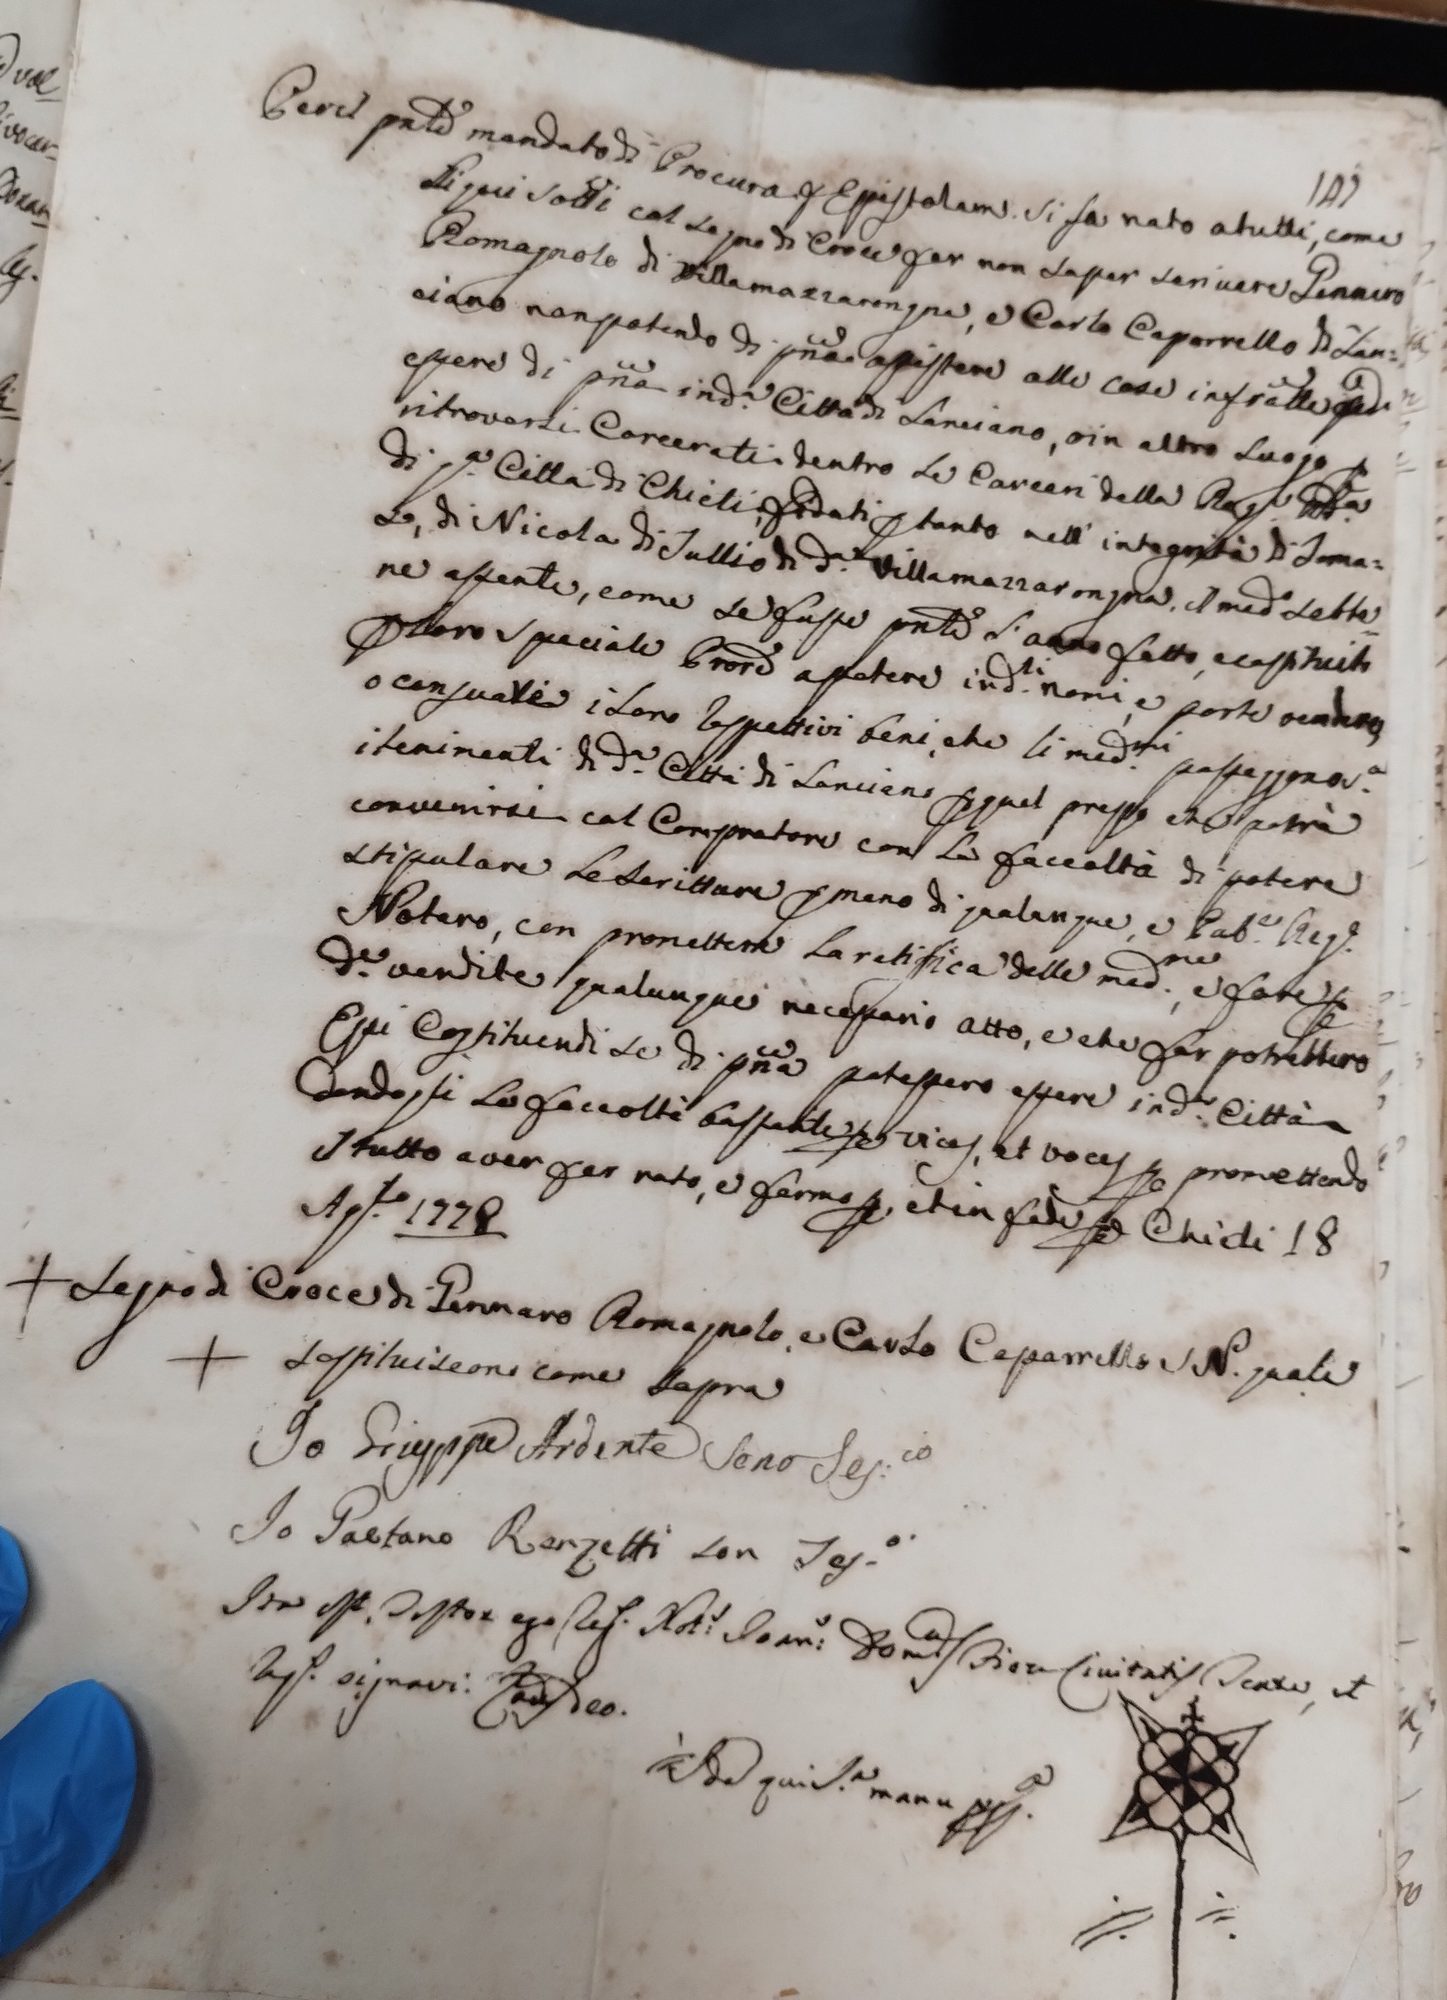 147
Per il pnte mandato di Procura p Epistolam. si fa noto a tutti, come
li qui sotti col segno di Croce per non saper scrivere Gennaro
Romagnolo di Villamazzarongna, e Carlo Caparrello di Lan=
ciano non potendo di pnza assistere alle cose infratte
essere di pnza in da. Città di Lanciano, o in altro luogo p
ritrovarsi Carcerati dentro le Carceri della Rega. Uda.
di qa. Città di Chieti, fidati p tanto nell' integrità di Toma=
so, di Nicola di Tullio di da. Villamazzarongna, il medo. sebbe=
ne assente, come se fusse pnte l' anno fatto, e costituito
p loro speciale Prore a potere in dti. nomi, e parte vendere,
o censuare i loro respettivi beni, che li medmi. posseggono
i tenimenti di da. Città di Lanciano p quel prezzo che potrà
convenirsi col Compratore con la faccoltà di potere
stipulare le scritture p mano di qualunque, e Pubo. Rego.
Notaro, con promettere la ratifica delle medme., e fare p
de. vendite qualunque necessario atto, e che far potrebbero
Essi Costituendi se di pnza potessero essere in da. Città
dandogli la faccoltà bastante vices, et voces promettendo
il tutto aver per rato, e fermo et in fede Chieti 18
Agto. 1778
+ Segno di Croce di Gennaro Romagnolo, e Carlo Caparrello N. quali
+ costituiscono come sopra
Io Giuseppe Ardente sono Tes:io
Io Gaetano Renzetti son Tes.o
Ita est, Testor ego Reg. Notr. Joann: Civitatis Teate, et
rogs. signavi: Laus Deo.
manu ppa.